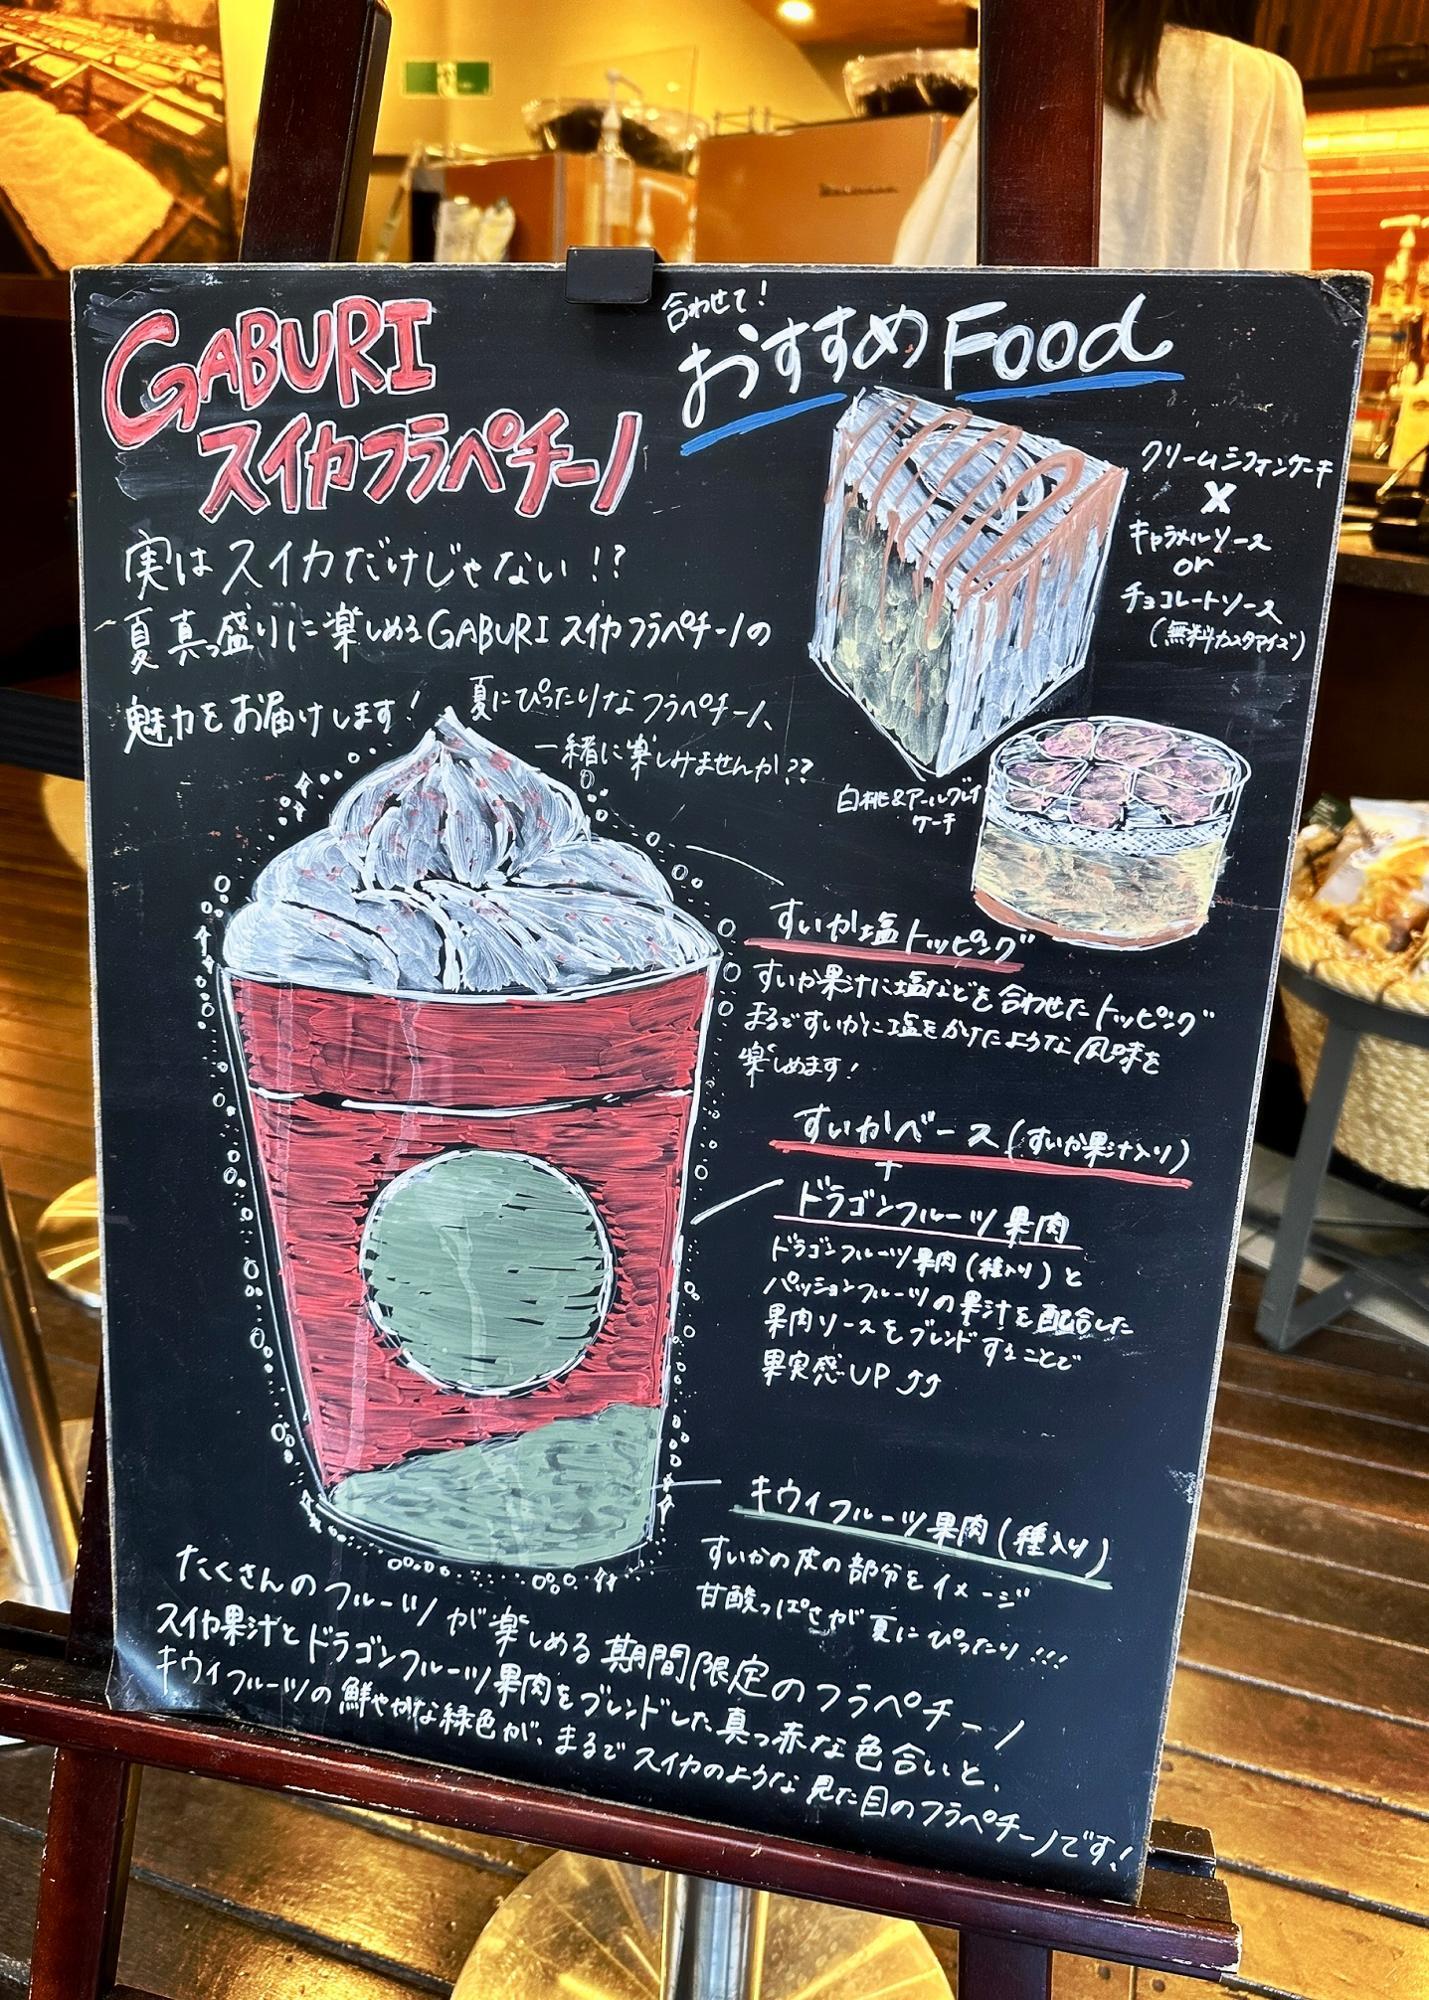 GABURI
スイカフラペチーノ
実はスイカだけじゃない!?
夏真っ盛りに楽しめるGABURIスイカフラペチーノの
魅力をお届けします!
夏にぴったりなフラペチーノ、
一緒に楽しみませんか??
合わせて!
おすすめFood
クリームシフォンケーキ
×
キャラメルソース
or
チョコレートソース
(無料カスタマイズ)
白桃&アールグレイ
ケーキ
すいか塩トッピング
すいか果汁に塩などを合わせたトッピング
まるですいかに塩をかけたような風味を
楽しめます!
すいかベース(すいか果汁入り)
+
ドラゴンフルーツ果肉
ドラゴンフルーツ果肉(種入り)と
パッションフルーツの果汁を配合した
果肉ソースをブレンドすることで
果実感UP⤴⤴
キウイフルーツ果肉(種入り)
すいかの皮の部分をイメージ
甘酸っぱさが夏にぴったり!!!
たくさんのフルーツが楽しめる期間限定のフラペチーノ
スイカ果汁とドラゴンフルーツ果肉をブレンドした真っ赤な色合いと、
キウイフルーツの鮮やかな緑色が、まるでスイカのような見た目のフラペチーノです!